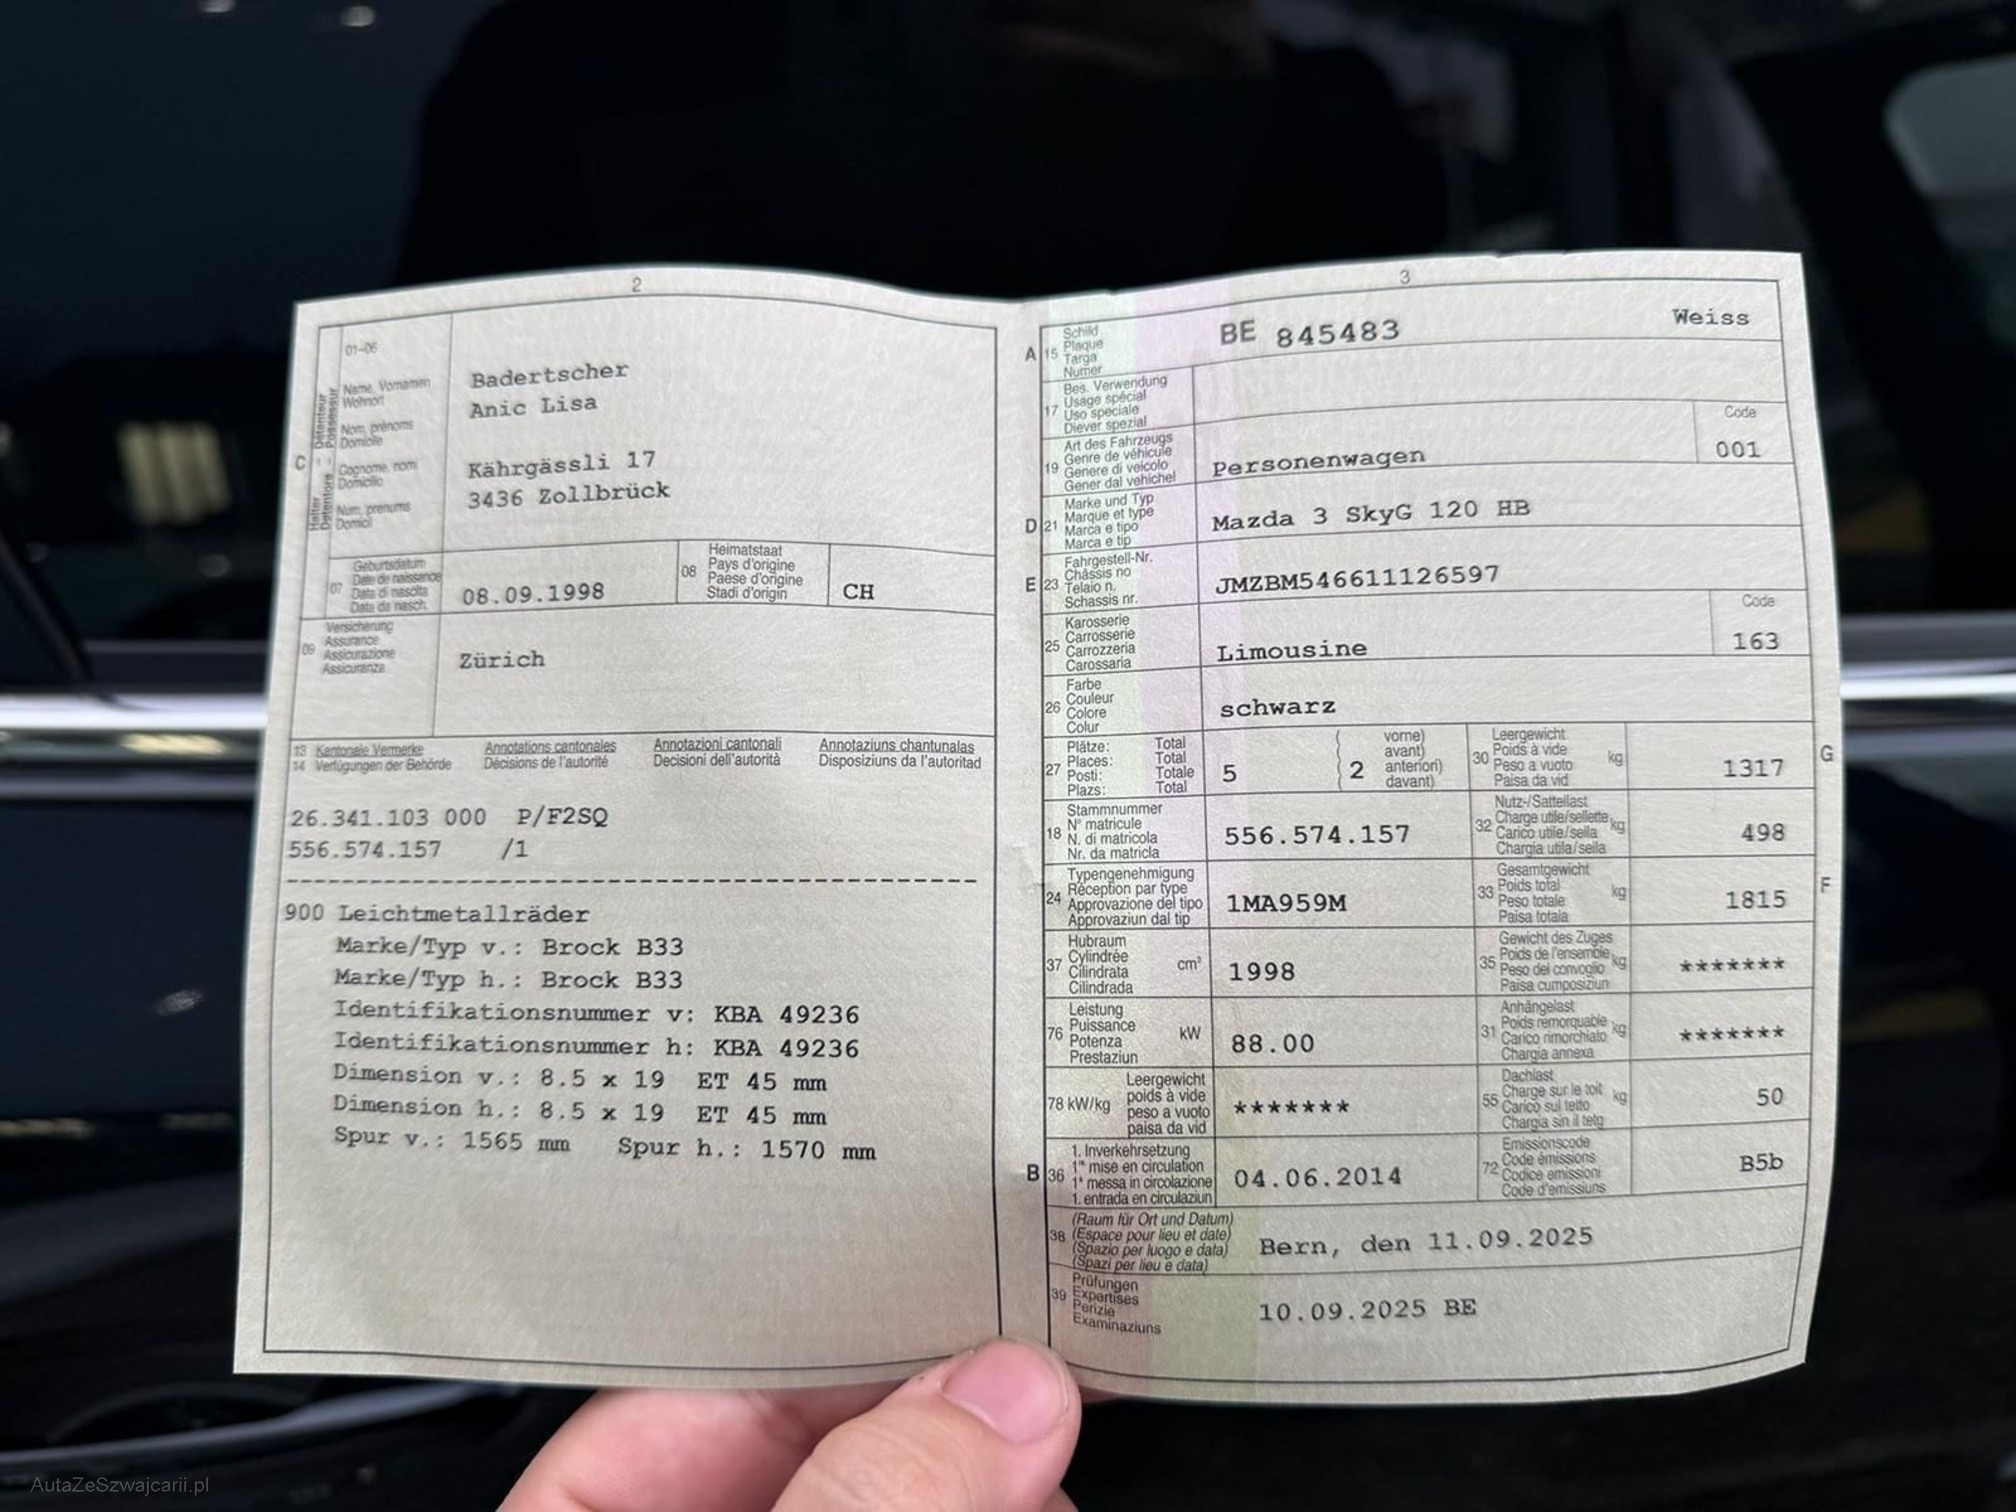 2
01-06
Halter Détenteur
Detentore Possessur
Name, Vornamen
Wohnort
Nom, prénoms
Domicile
C
Cognome, nomi
Domicilio
Num, prenums
Domicil
Badertscher
Anic Lisa
Kährgässli 17
3436 Zollbrück
07
Geburtsdatum
Date de naissance
Data di nascita
Data da nasch.
08.09.1998
08
Heimatstaat
Pays d'origine
Paese d'origine
Stadi d'origin
CH
09
Versicherung
Assurance
Assicurazione
Assicuranza
Zürich
13 Kantonale Vermerke Annotations cantonales Annotazioni cantonali Annotaziuns chantunalas
14 Verfügungen der Behörde Décisions de l'autorité Decisioni dell'autorità Disposiziuns da l'autoritad
26.341.103 000 P/F2SQ
556.574.157 /1
900 Leichtmetallräder
Marke/Typ v.: Brock B33
Marke/Typ h.: Brock B33
Identifikationsnummer v: KBA 49236
Identifikationsnummer h: KBA 49236
Dimension v.: 8.5 x 19 ET 45 mm
Dimension h.: 8.5 x 19 ET 45 mm
Spur v.: 1565 mm Spur h.: 1570 mm
3
A 15
Schild
Plaque
Targa
Numer
BE 845483 Weiss
17
Bes. Verwendung
Usage spécial
Uso speciale
Diever spezial
19
Art des Fahrzeugs
Genre de véhicule
Genere di veicolo
Gener dal vehichel
Personenwagen
Code
001
D 21
Marke und Typ
Marque et type
Marca e tipo
Marca e tip
Mazda 3 SkyG 120 HB
E 23
Fahrgestell-Nr.
Châssis no
Telaio n.
Schassis nr.
JMZBM546611126597
25
Karosserie
Carrosserie
Carrozzeria
Carossaria
Limousine
Code
163
26
Farbe
Couleur
Colore
Colur
schwarz
27
Plätze: Total
Places: Total
Posti: Totale
Plazs: Total
5 ( 2
vorne)
avant)
anteriori)
davant)
30
Leergewicht
Poids à vide kg
Peso a vuoto
Paisa da vid
1317
G
18
Stammnummer
N° matricule
N. di matricola
Nr. da matricla
556.574.157
32
Nutz-/Sattellast
Charge utile/sellette kg
Carico utile/sella
Chargia utila/sella
498
24
Typengenehmigung
Réception par type
Approvazione del tipo
Approvaziun dal tip
1MA959M
33
Gesamtgewicht
Poids total kg
Peso totale
Paisa totala
1815
F
37
Hubraum
Cylindrée cm³
Cilindrata
Cilindrada
1998
35
Gewicht des Zuges
Poids de l'ensemble kg
Peso del convoglio
Paisa cumposiziun
*******
76
Leistung
Puissance kW
Potenza
Prestaziun
88.00
31
Anhängelast
Poids remorquable kg
Carico rimorchiato
Chargia annexa
*******
78 kW/kg
Leergewicht
poids à vide
peso a vuoto
paisa da vid
*******
55
Dachlast
Charge sur le toit kg
Carico sul tetto
Chargia sin il tetg
50
B 36
1. Inverkehrsetzung
1re mise en circulation
1a messa in circolazione
1. entrada en circulaziun
04.06.2014
72
Emissionscode
Code émissions
Codice emissioni
Code d'emissiuns
B5b
38
(Raum für Ort und Datum)
(Espace pour lieu et date)
(Spazio per luogo e data)
(Spazi per lieu e data)
Bern, den 11.09.2025
39
Prüfungen
Expertises
Perizie
Examinaziuns
10.09.2025 BE
AutaZeSzwajcarii.pl